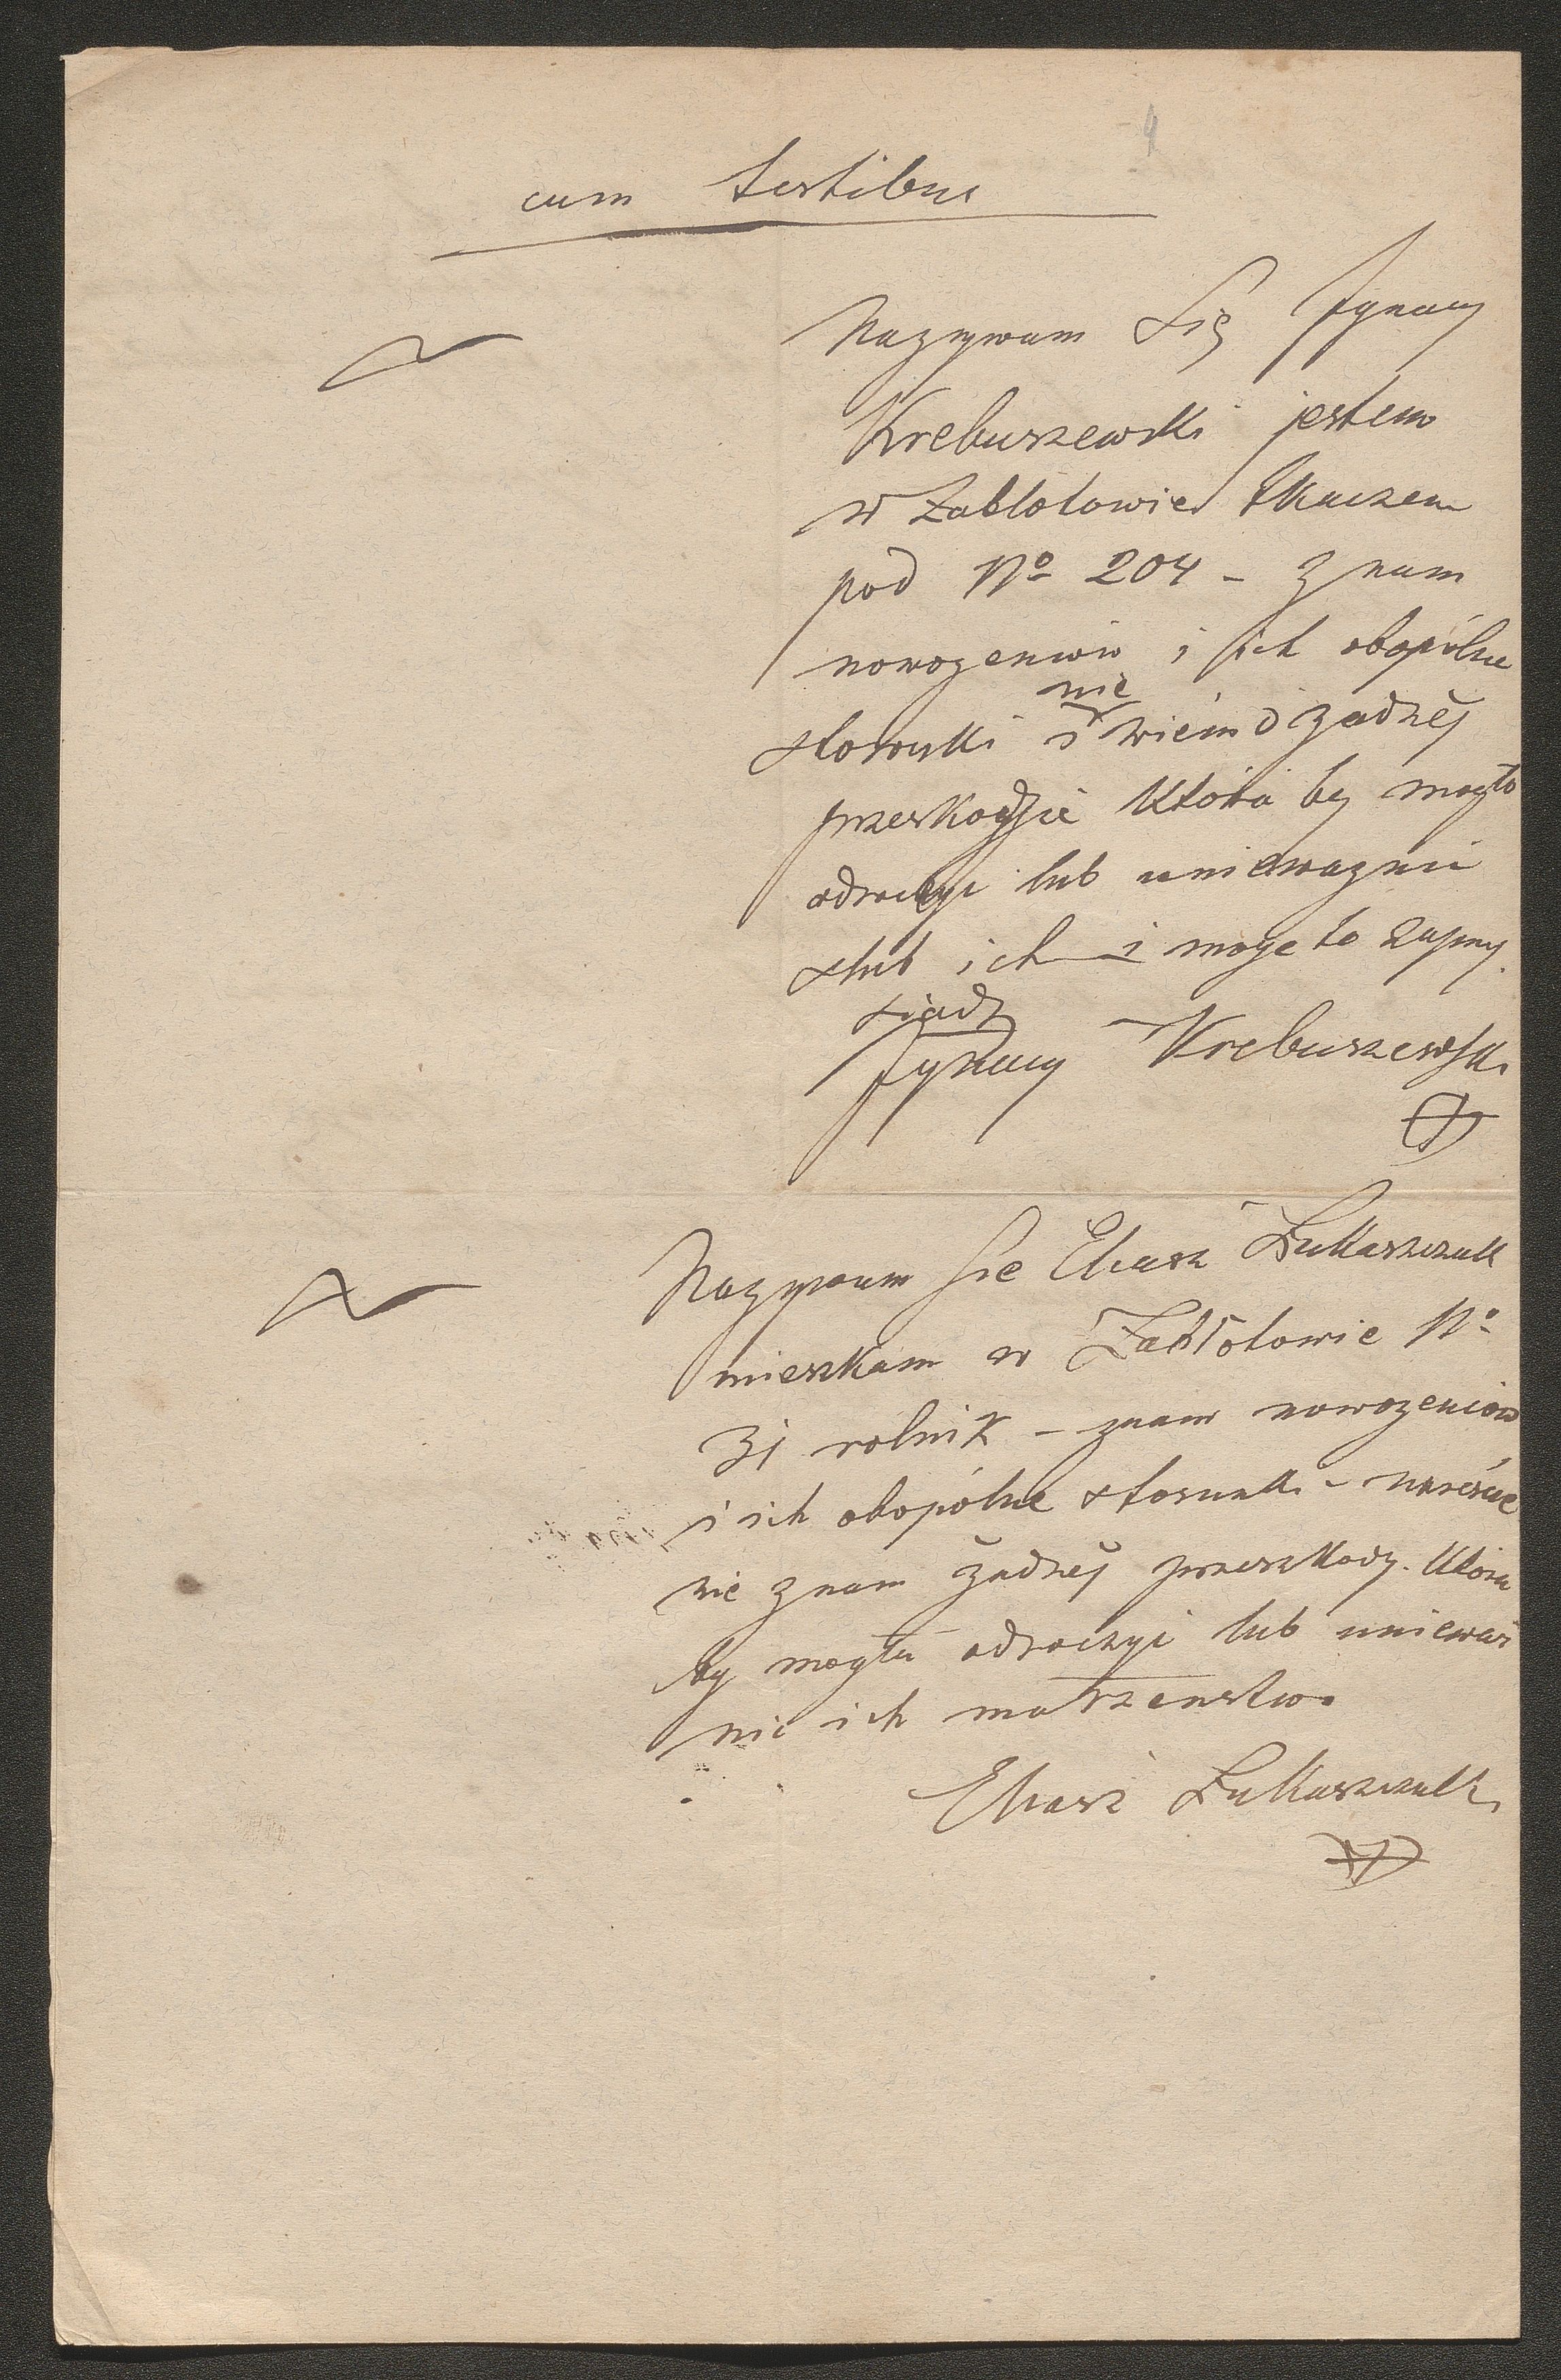 4
cum testibus
Nazywam się Jgnacy
Krebuszewski jestem
w Zabłotowie tkaczem
pod No 204 - znam
nowozencow i ich obopólne
stosunki i nie wiem o żadnéj
przeskodzie która by mogła
odroczyc lub uniewaznic
slub ich - i moge to zaprzy
siądz
Jgnacy Krebuszewski
Nazywam sie Eliasz Łukaszczuk
mieszkam w Zabłotowie No
31 rolnik - znam nowozencow
i ich obopólne stosunki -
nie znam żadnéj przeszkody która
by mogła odroczyc lub unieważ
nic ich małżenstwo
Eliasz Łukaszczuk